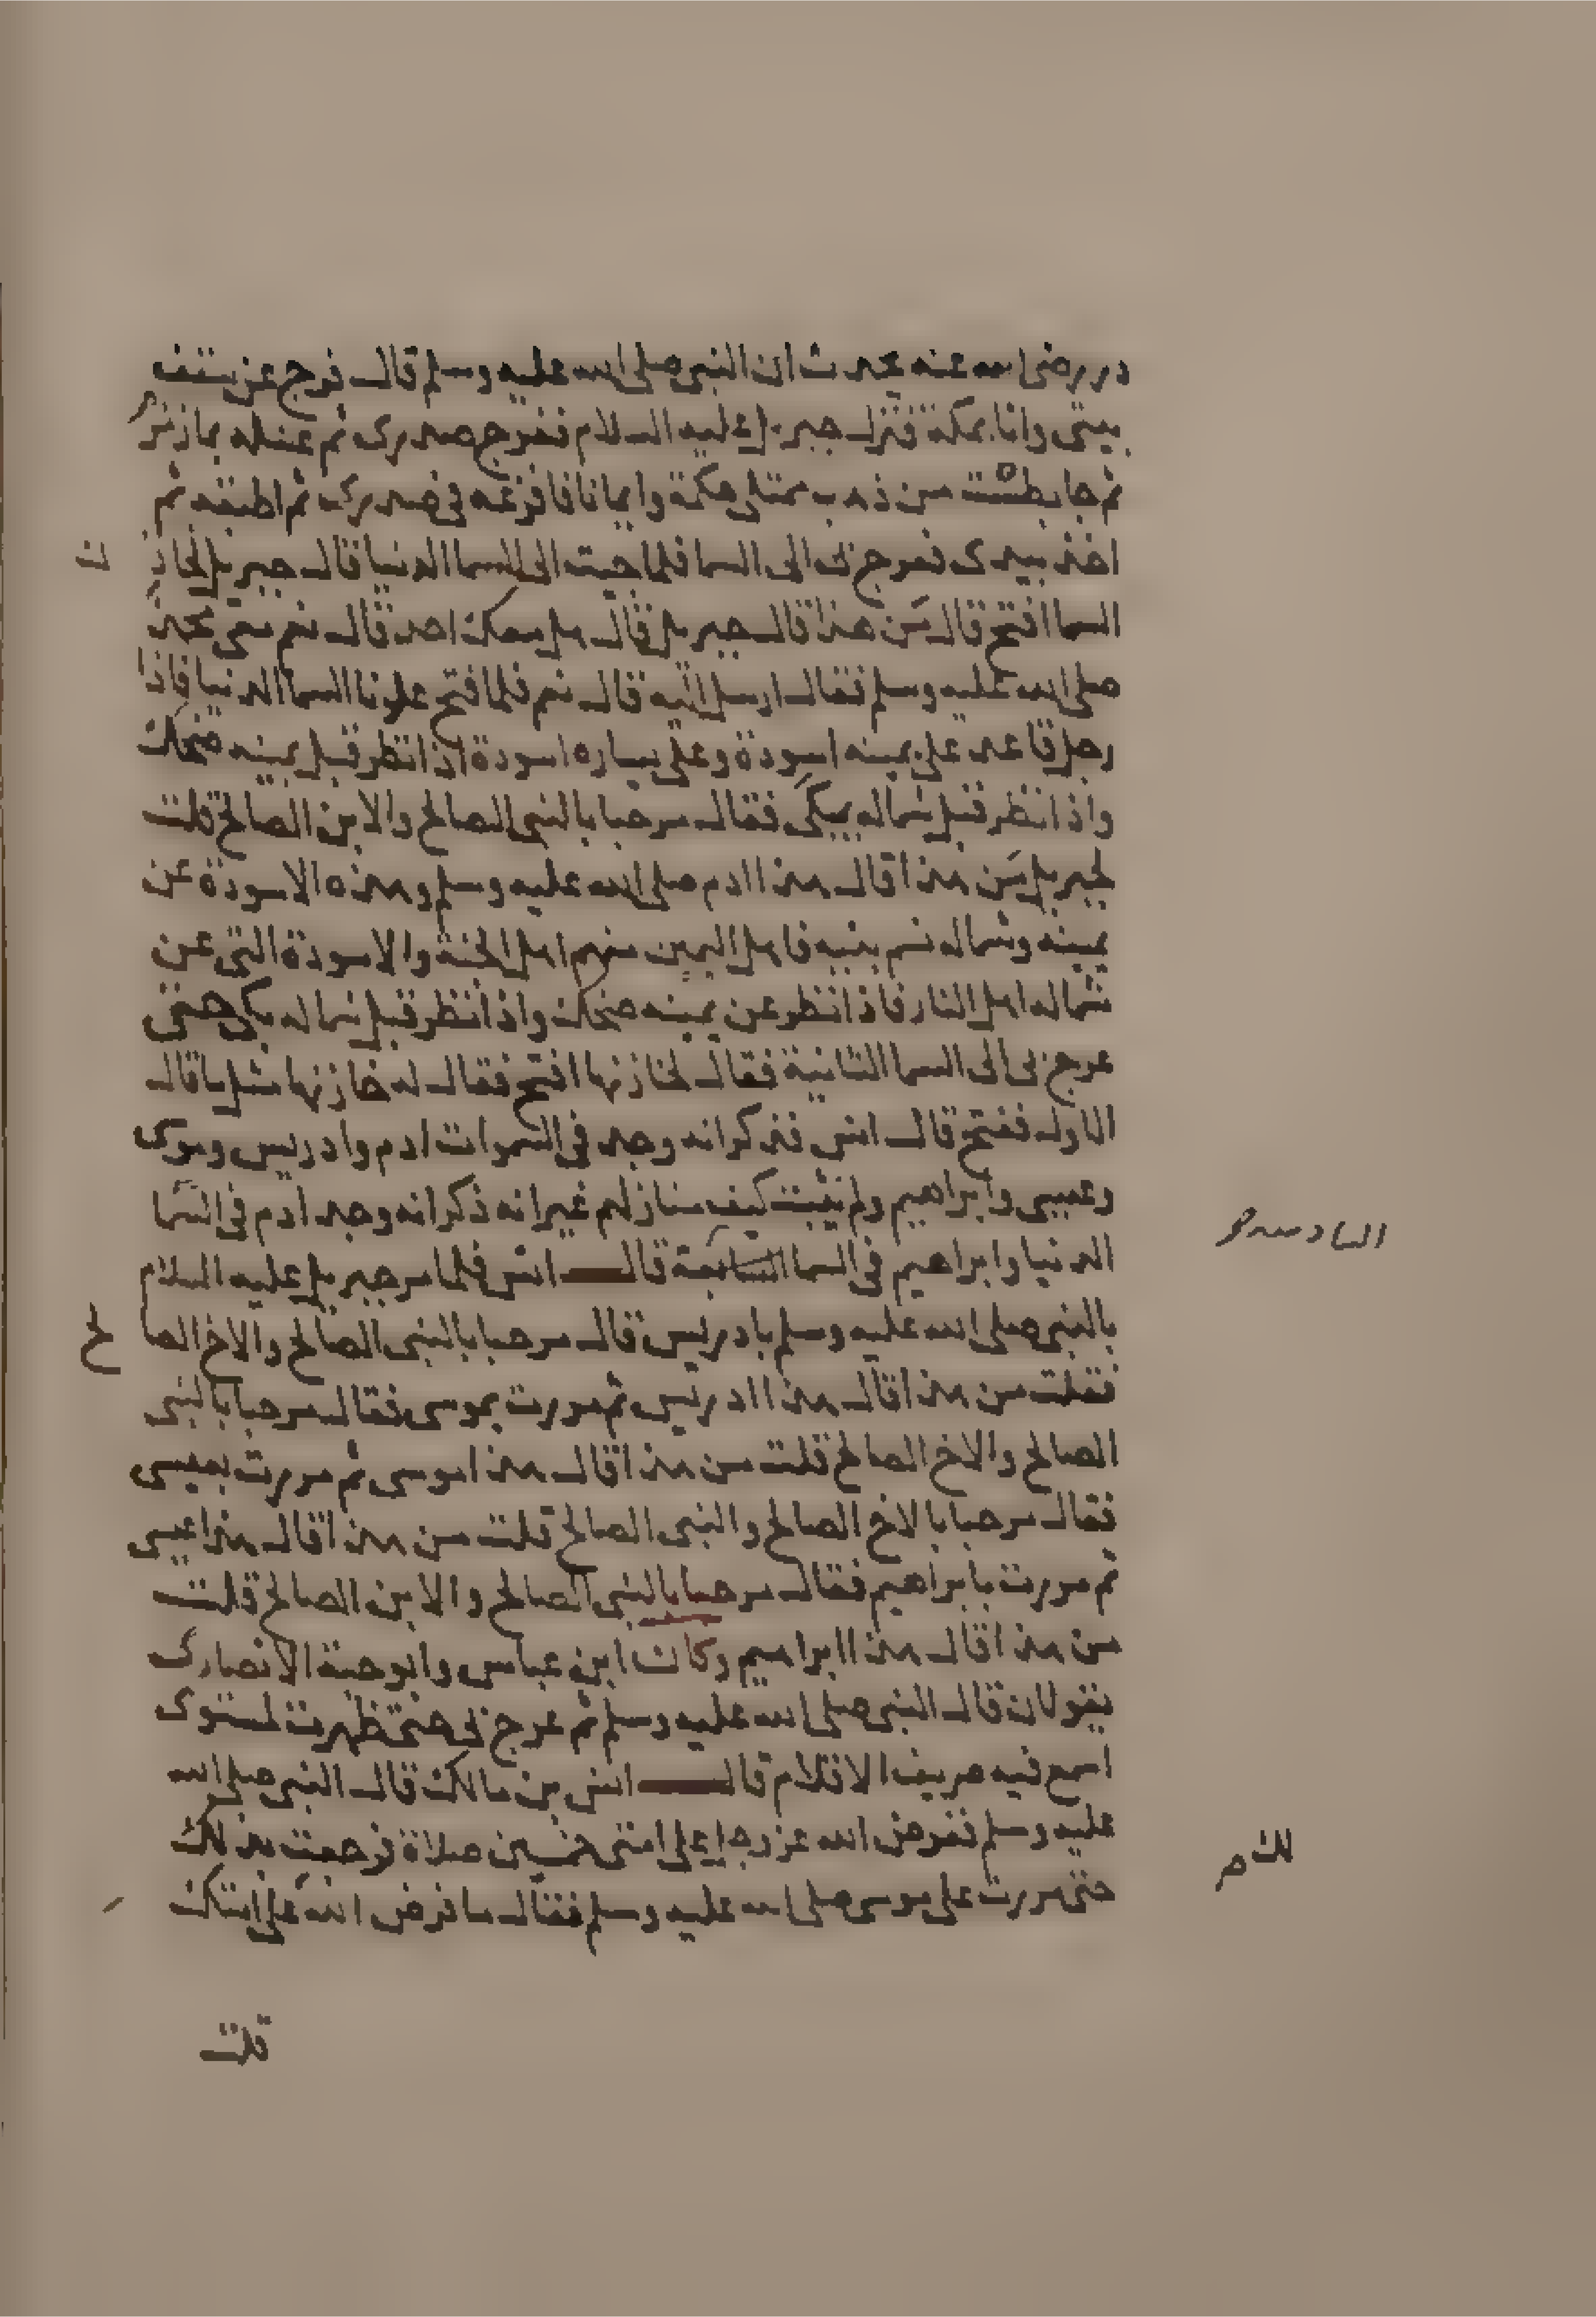 در رضى الله عنه يحدث ان النبى صلى الله عليه وسلم قال فرج عن سقف
بيتى وانا بمكة فنزل جبريل عليه السلام ففرج صدرى ثم غسله بماء زمزم
ثم جا بطست من ذهب ممتلى حكمة وايمانا فافرغه فى صدرى ثم اطبقه ثم
اخذ بيدى فعرج بى الى السما فلما جيت الى السما الدنيا قال جبريل لخازن
السما افتح قال من هذا قال جبريل قال هل معك احد قال نعم معى محمد
صلى الله عليه وسلم فقال ارسل اليه قال نعم فلما فتح علونا السما الدنيا فاذا
رجل قاعد على يمينه اسودة وعلى يساره اسودة اذا نظر قبل يمينه ضحك
واذا نظر قبل شماله يبكى فقال مرحبا بالنبى الصالح والابن الصالح قلت
لجبريل من هذا قال هذا ادم صلى الله عليه وسلم وهذه الاسودة عن
يمينه وشماله نسم بنيه فاهل اليمين منهم اهل الجنة والاسودة التى عن
شماله اهل النار فاذا نظر عن يمينه ضحك واذا نظر قبل شماله بكى حتى
عرج بى الى السما الثانية فقال لخازنها افتح فقال له خازنها مثل ما قال
الاول ففتح قال انس فذكر انه وجد فى السموات ادم وادريس وموسى
وعيسى وابراهيم ولم يثبت كيف منازلهم غير انه ذكر انه وجد ادم فى السما
السادسة
الدنيا وابراهيم فى السما السابعة قال انس فلما مر جبريل عليه السلام
بالنبى صلى الله عليه وسلم بادريس قال مرحبا بالنبى الصالح والاخ الصالح
فقلت من هذا قال هذا ادريس ثم مررت بموسى فقال مرحبا بالنبى
الصالح والاخ الصالح قلت من هذا قال هذا موسى ثم مررت بعيسى
فقال مرحبا بالاخ الصالح والنبى الصالح قلت من هذا قال هذا عيسى
ثم مررت بابراهيم فقال مرحبا بالنبى الصالح والابن الصالح قلت
من هذا قال هذا ابراهيم وكان ابن عباس وابو حبة الانصارى
يقولان قال النبى صلى الله عليه وسلم ثم عرج بى حتى ظهرت لمستوى
اسمع فيه صريف الاقلام قال انس بن مالك قال النبى صلى الله
عليه وسلم ففرض الله عز وجل على امتى خمسين صلاة فرجعت بذلك
حتى مررت على موسى صلى الله عليه وسلم فقال ما فرض الله على امتك
قلت